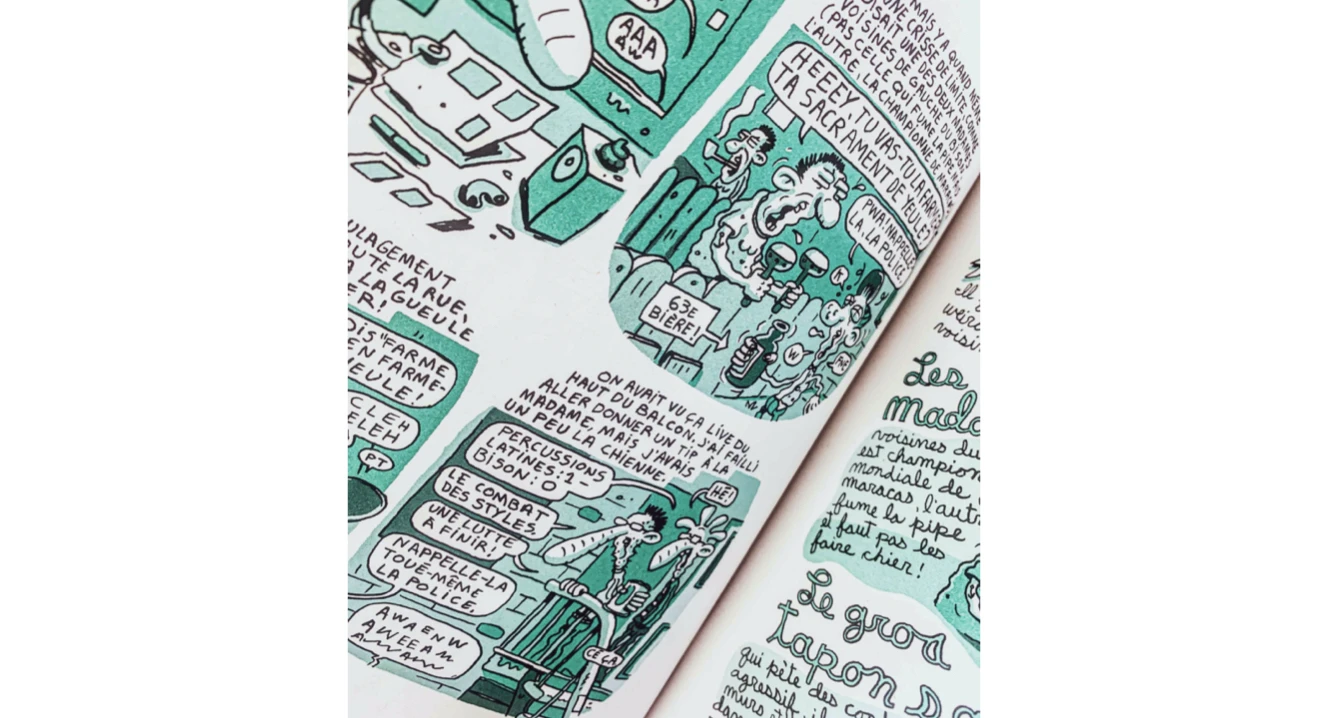 AAA
MAIS Y A QUAND MÊME
UNE CRISSE DE LIMITE, COMME
DISAIT UNE DES DEUX MADAMES
VOISINES DE GAUCHE DU BISON
(PAS CELLE QUI FUME LA PIPE MAIS
L'AUTRE, LA CHAMPIONNE DE MARACAS)
HEEEY, TU VAS-TU LA FARMER
TA SACRAMENT DE YEULE!
PWA! N'APPELLE
LA, LA POLICE,
63E
BIÈRE!
ULAGEMENT
UTE LA RUE,
LA GUEULE
ER!
DIS "FARME
EN FARME-
EULE!
CLEH
ELEH
PT
ON AVAIT VU ÇA LIVE DU
HAUT DU BALCON. J'AI FAILLI
ALLER DONNER UN TIP À LA
MADAME, MAIS J'AVAIS
UN PEU LA CHIENNE.
PERCUSSIONS
LATINES: 1-
BISON: 0
HÉ!
LE COMBAT
DES STYLES.
UNE LUTTE
À FINIR!
N'APPELLE-LA
TOUÉ-MÊME
LA POLICE.
AWAENW
AWEEAM
CÉ ÇA
weird
voisin
Les
mada
voisines du
est champion
mondiale de
maracas, l'autr
fume la pipe,
et faut pas les
faire chier!
Le gros
tapon
qui pète des
agressif
murs